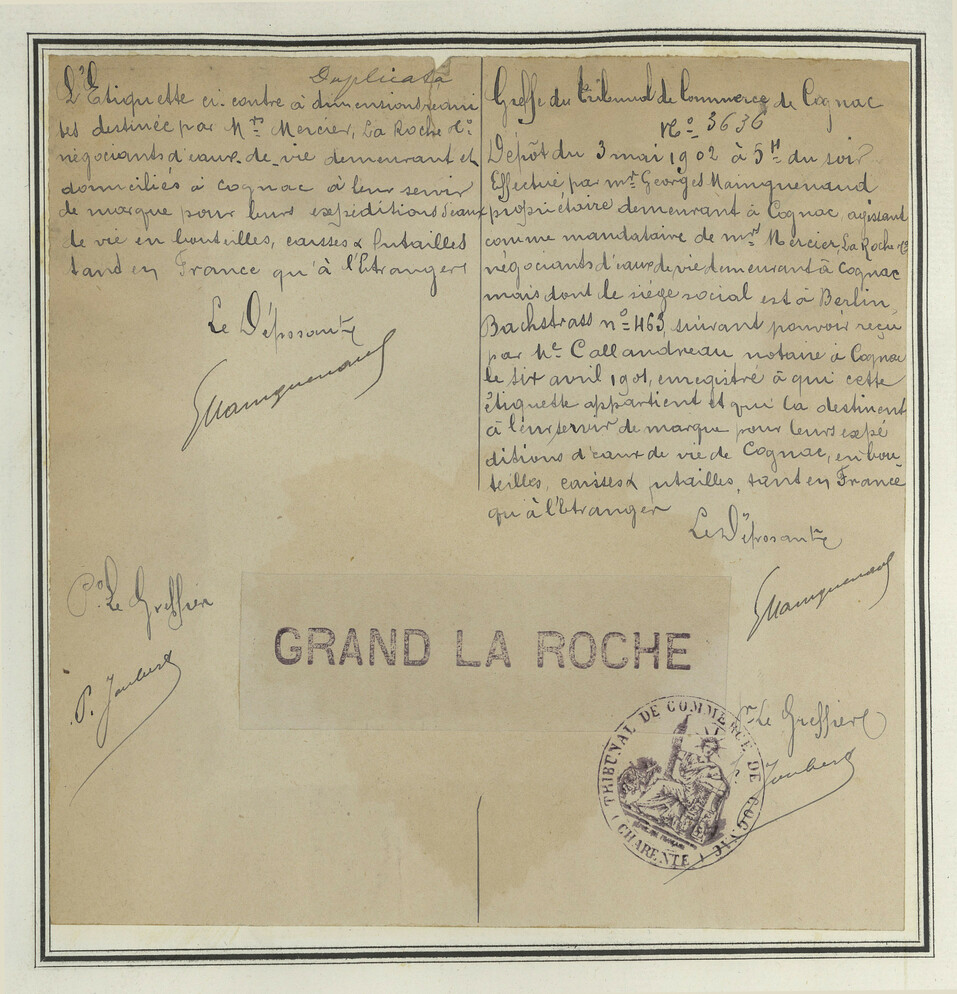 Duplicata
L'Étiquette ci-contre à dimensions réani
tes destinée par Mrs Mercier, La Roche & Co
négociants d'eaux-de-vie demeurant et
domiciliés à Cognac à leur servir
de marque pour leurs expéditions d'eaux
de vie en bouteilles, caisses & futailles
tant en France qu'à l'Etranger
Le Déposant
GMainguenaud
Po Le Greffier
P. Joubert
Greffe du tribunal de Commerce de Cognac
No 3636
Dépôt du 3 mai 1902 à 5H du soir
Effectué par mr Georges Mainguenaud
propriétaire demeurant à Cognac, agissant
comme mandataire de mrs Mercier, La Roche & Co
négociants d'eaux de vie demeurant à Cognac
mais dont le siège social est à Berlin,
Bachstrass no 463, suivant pouvoir reçu
par Me Callandreau notaire à Cognac
le six avril 1901, enregistré à qui cette
étiquette appartient et qui la destinent
à leur servir de marque pour leurs expé
ditions d'eaux de vie de Cognac, en bou-
teilles, caisses & futailles, tant en France
qu'à l'Etranger
Le Déposant
GMainguenaud
GRAND LA ROCHE
Pr Le Greffier
P. Joubert
TRIBUNAL DE COMMERCE DE COGNAC
(CHARENTE)